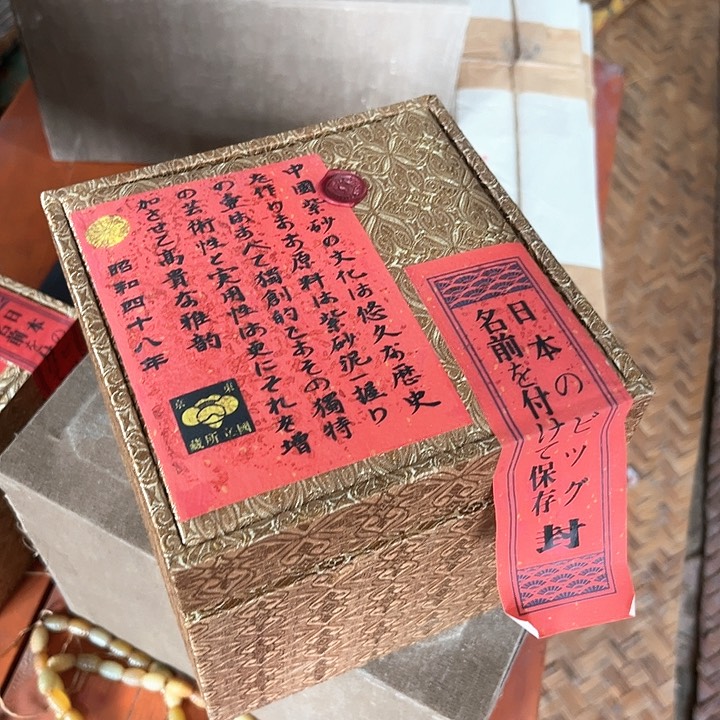 中國紫砂の文化は悠久な歴史
を作りああ原料は紫砂泥一握り
のはあべて獨創的てあその獨特
の芸術性と実用性は更にそれを増
加させて高貴な雅韵
昭和四十八年
東京
國立所藏
日本のビッグ
名前を付けて保存
封
日本の
名前を